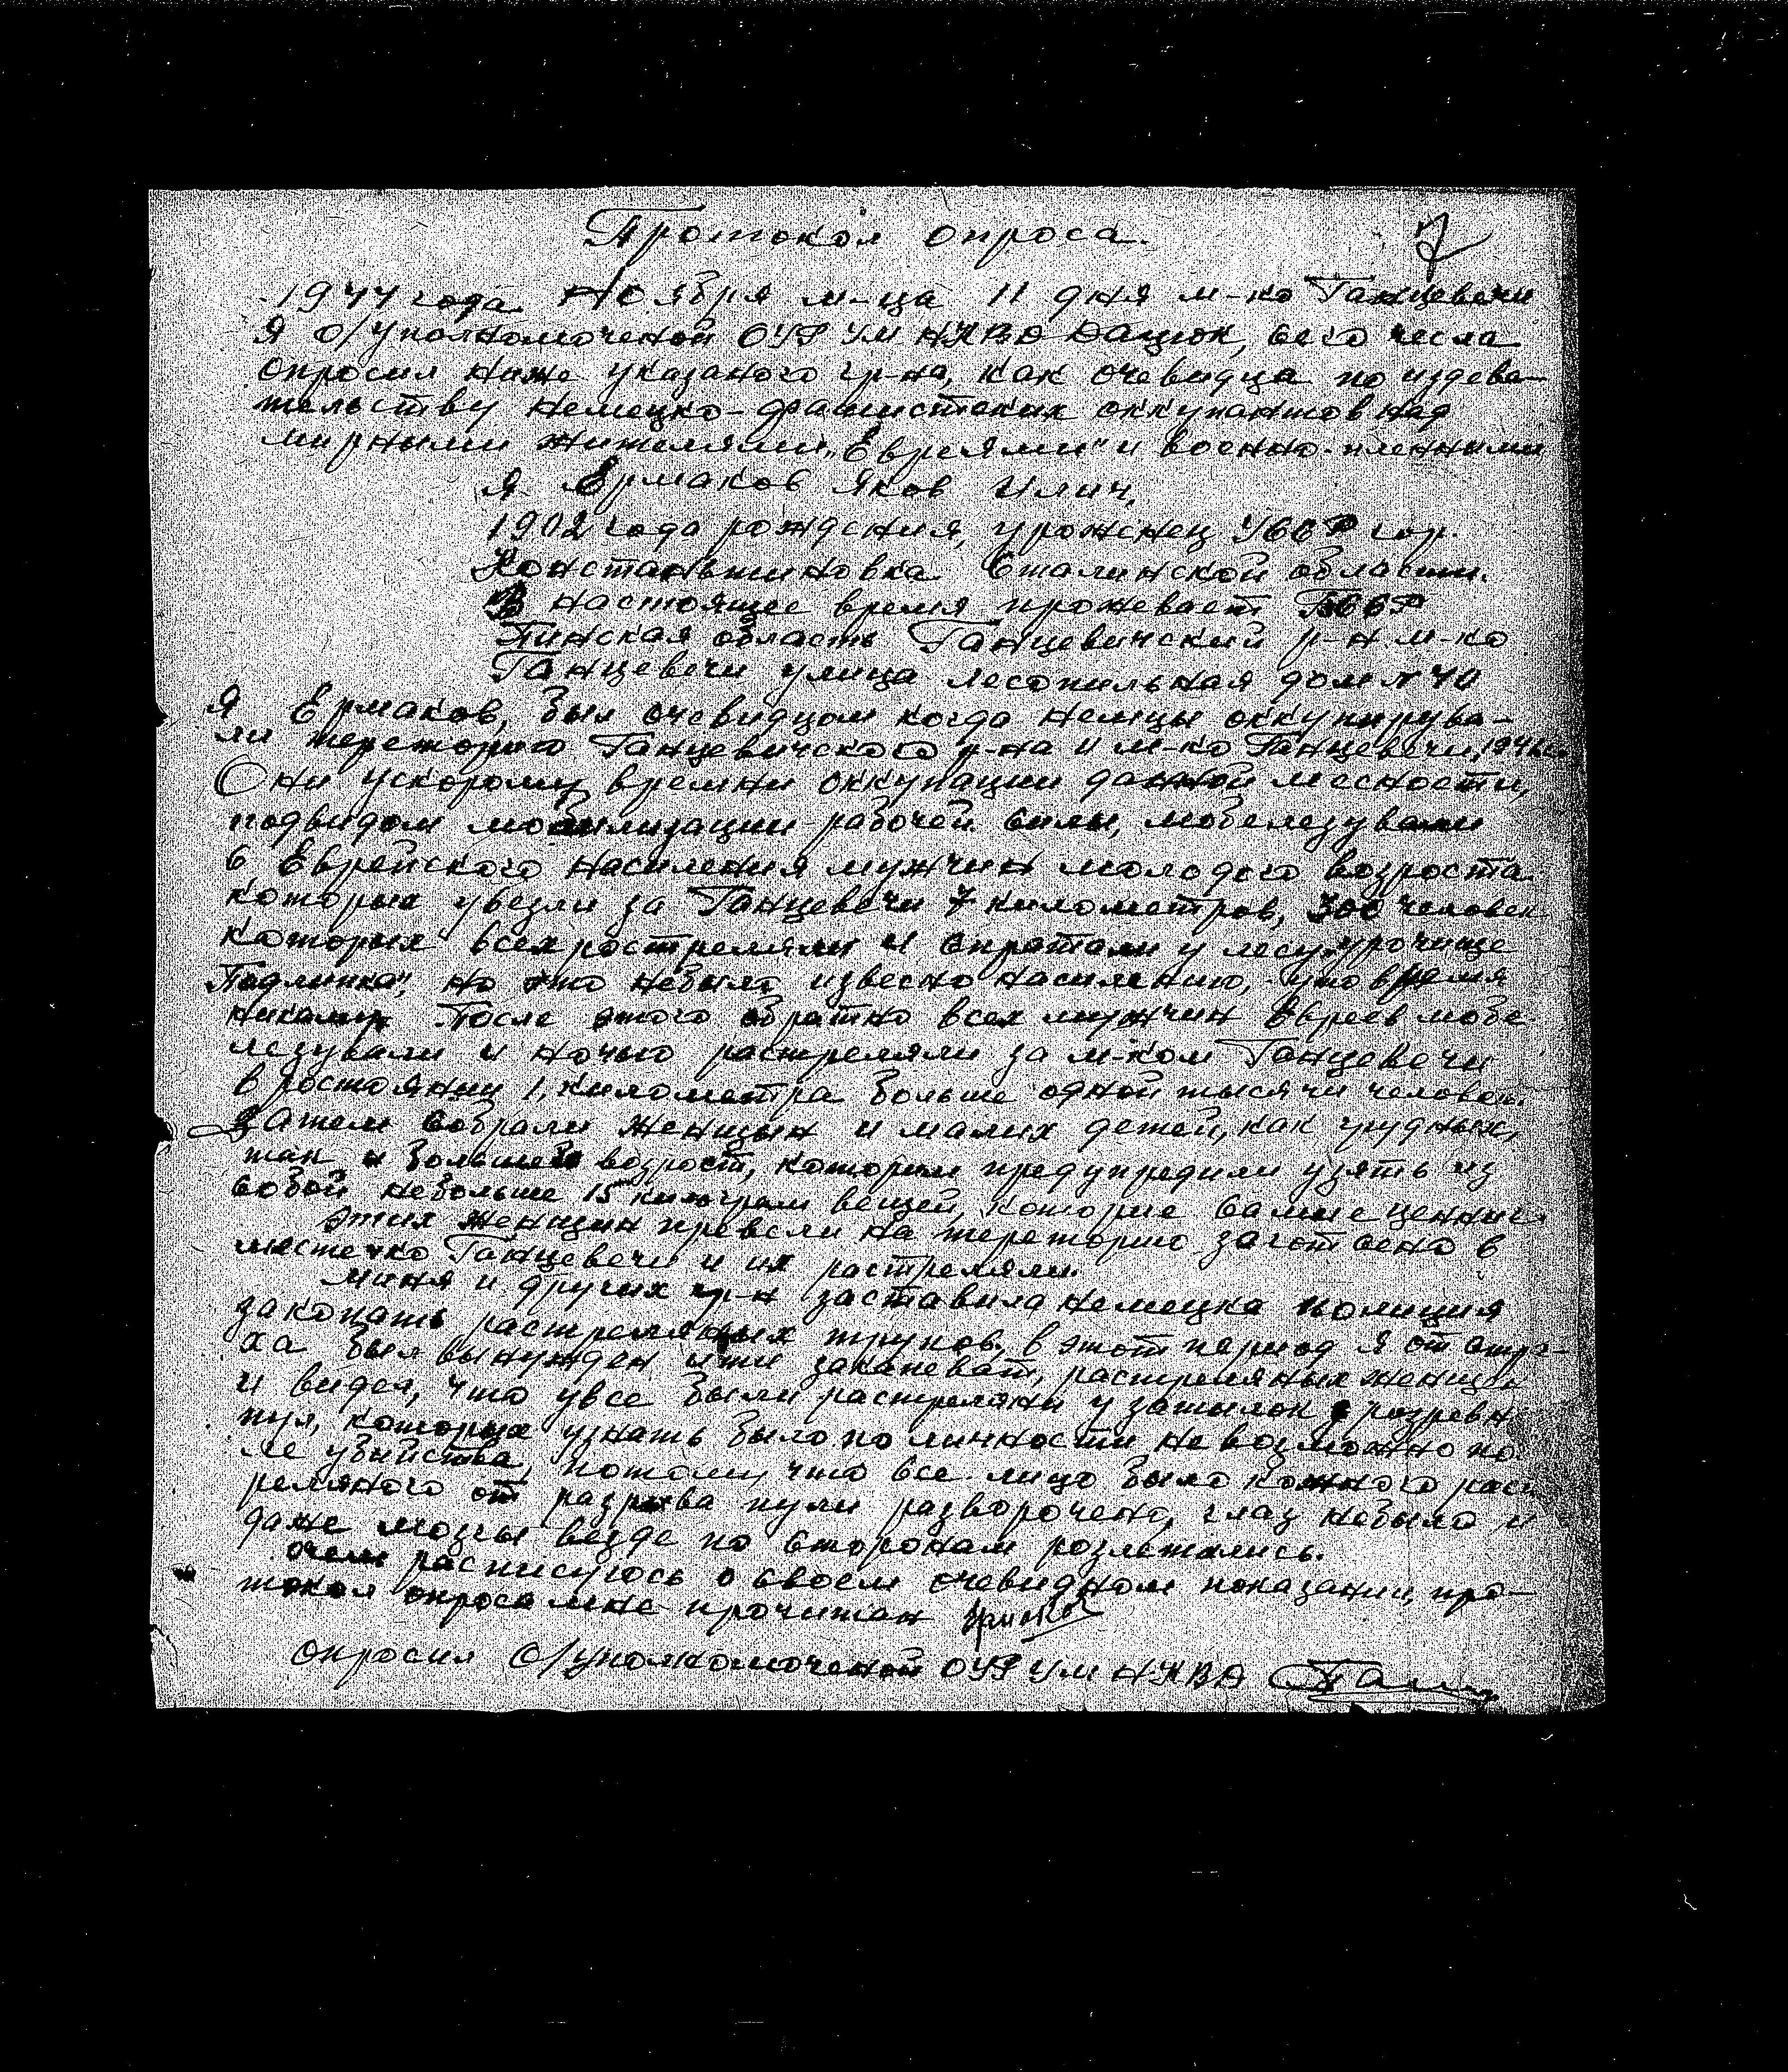 Протокол опроса.
7
1944 года Ноября м-ца 11 дня м-ко Ганцевечи
Я о/уполномоченой ОУР УМ НКВД Дацюк, сего числа
опросил ниже указаного гр-на, как очевидца по издева-
тельству немецко-фашистских оккупантов над
мирными жителями „Евреями" и военно-пленными
Я Ермаков Яков Илич,
1902 года рождения, уроженец УССР гор.
Констаньтиновка Сталинской области.
В настоящее время прожевает БССР
Пинская область Ганцевичский р-н м-ко
Ганцевечи улица лесопильная дом N 40
Я Ермаков, был очевидцом когда немцы оккупирува-
ли тереторию Ганцевичского р-на и м-ко Ганцевечи,
Они ускорому времни оккупации данной месности,
подвидом мобилизации рабочей силы, мобелезували
с Еврейского насиления мужчин молодого возроста
которых увезли за Ганцевечи 7 километров, 300 человек
каторых всех ростреляли и спратали у лесу урочище
Подлипка", но это небыло извесно насилению, уто время
никому. После этого обратно всех мужчин Евреев мобе-
лезували и ночью растреляли за м-ком Ганцевечи
в ростоянии 1, километра больше одной тысячи человек.
Затем собрали женщын и малих детей, как грудных,
так и большей возрост, которым предупредили узять из
собой небольше 15 килограм вещей, которие самые ценние
Этих женщин превели на тереторию заготсена в
местечко Ганцевечи и их растреляли.
Миня и других гр-н заставила немецка полиция
закопать растреляных трупов, в этот период я от стра-
ха был вынужден ити закапеват, растреляных женщен
и видел, что увсе были растреляни у затылок розревн
пул, которых узнать было по личности невозможно по-
ле убийства, потому, что все лицо было кожного раст
реляного от разрыва пули разворочено, глаз небыло и
даже мозгы везде по сторонам розлетались.
очем расписуюсь о своем очевидном показании, про-
токол опроса мне прочитан
Опросил О/уполномоченой ОУР УМ НКВД